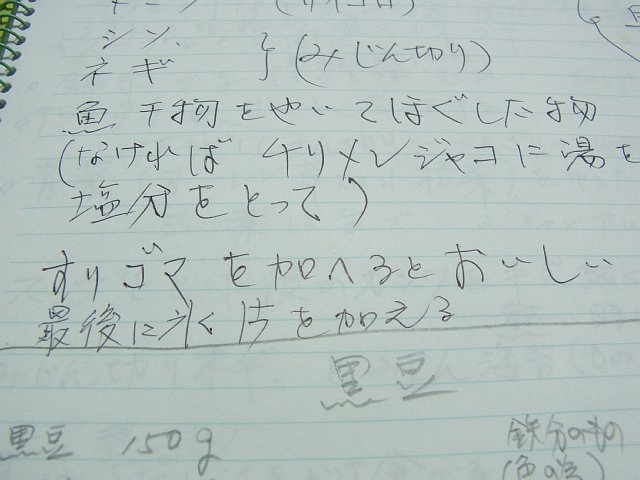 (サイコロ)
シソ、
ネギ } (みじん切り)
魚 干物をやいてほぐした物
(なければ チリメンジャコに湯を
塩分をとって)
すりゴマを加へるとおいしい
最後に氷片を加える
黒豆
黒豆 150g 鉄分のもの